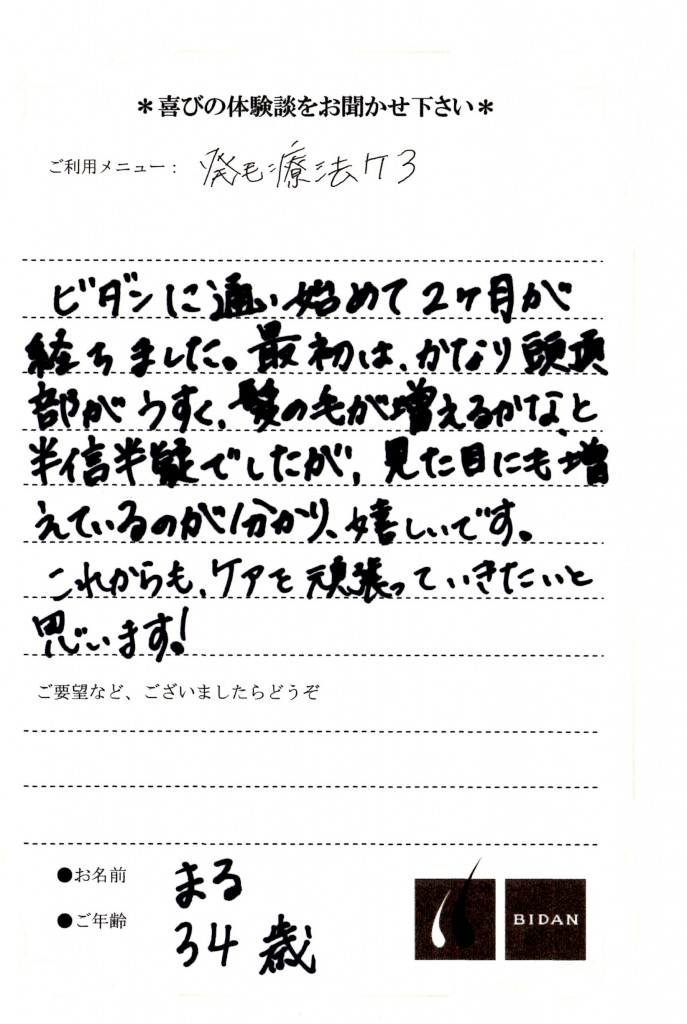 *喜びの体験談をお聞かせ下さい*
ご利用メニュー： 発毛療法ケア3
ビダンに通い始めて2ヶ月が
経ちました。最初は、かなり頭頂
部がうすく、髪の毛が増えるかな、と
半信半疑でしたが、見た目にも増
えているのが分かり、嬉しいです。
これからも、ケアを頑張っていきたいと
思います!
ご要望など、ございましたらどうぞ
●お名前 まる
●ご年齢 34歳
BIDAN